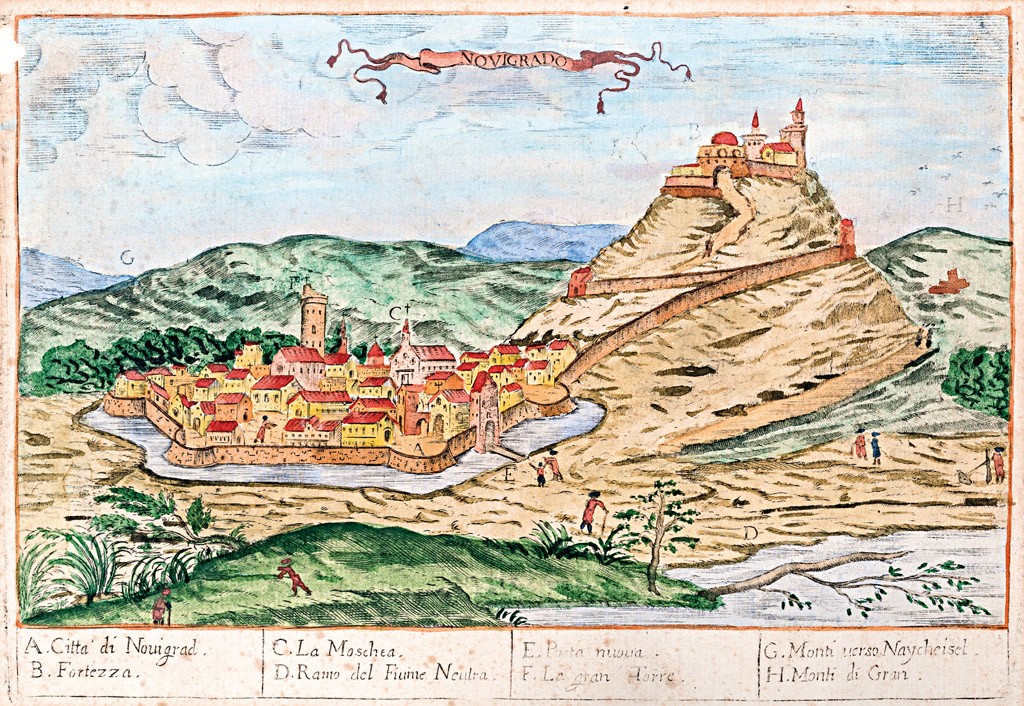 NOVIGRADO
B
H
G
F
C
A
E
D
A. Citta di Novigrad.
B. Fortezza.
C. La Moschea.
D. Ramo del Fiume Neutra.
E. Porta nuova.
F. La gran Torre.
G. Monti verso Naycheisel.
H. Monti di Gran.